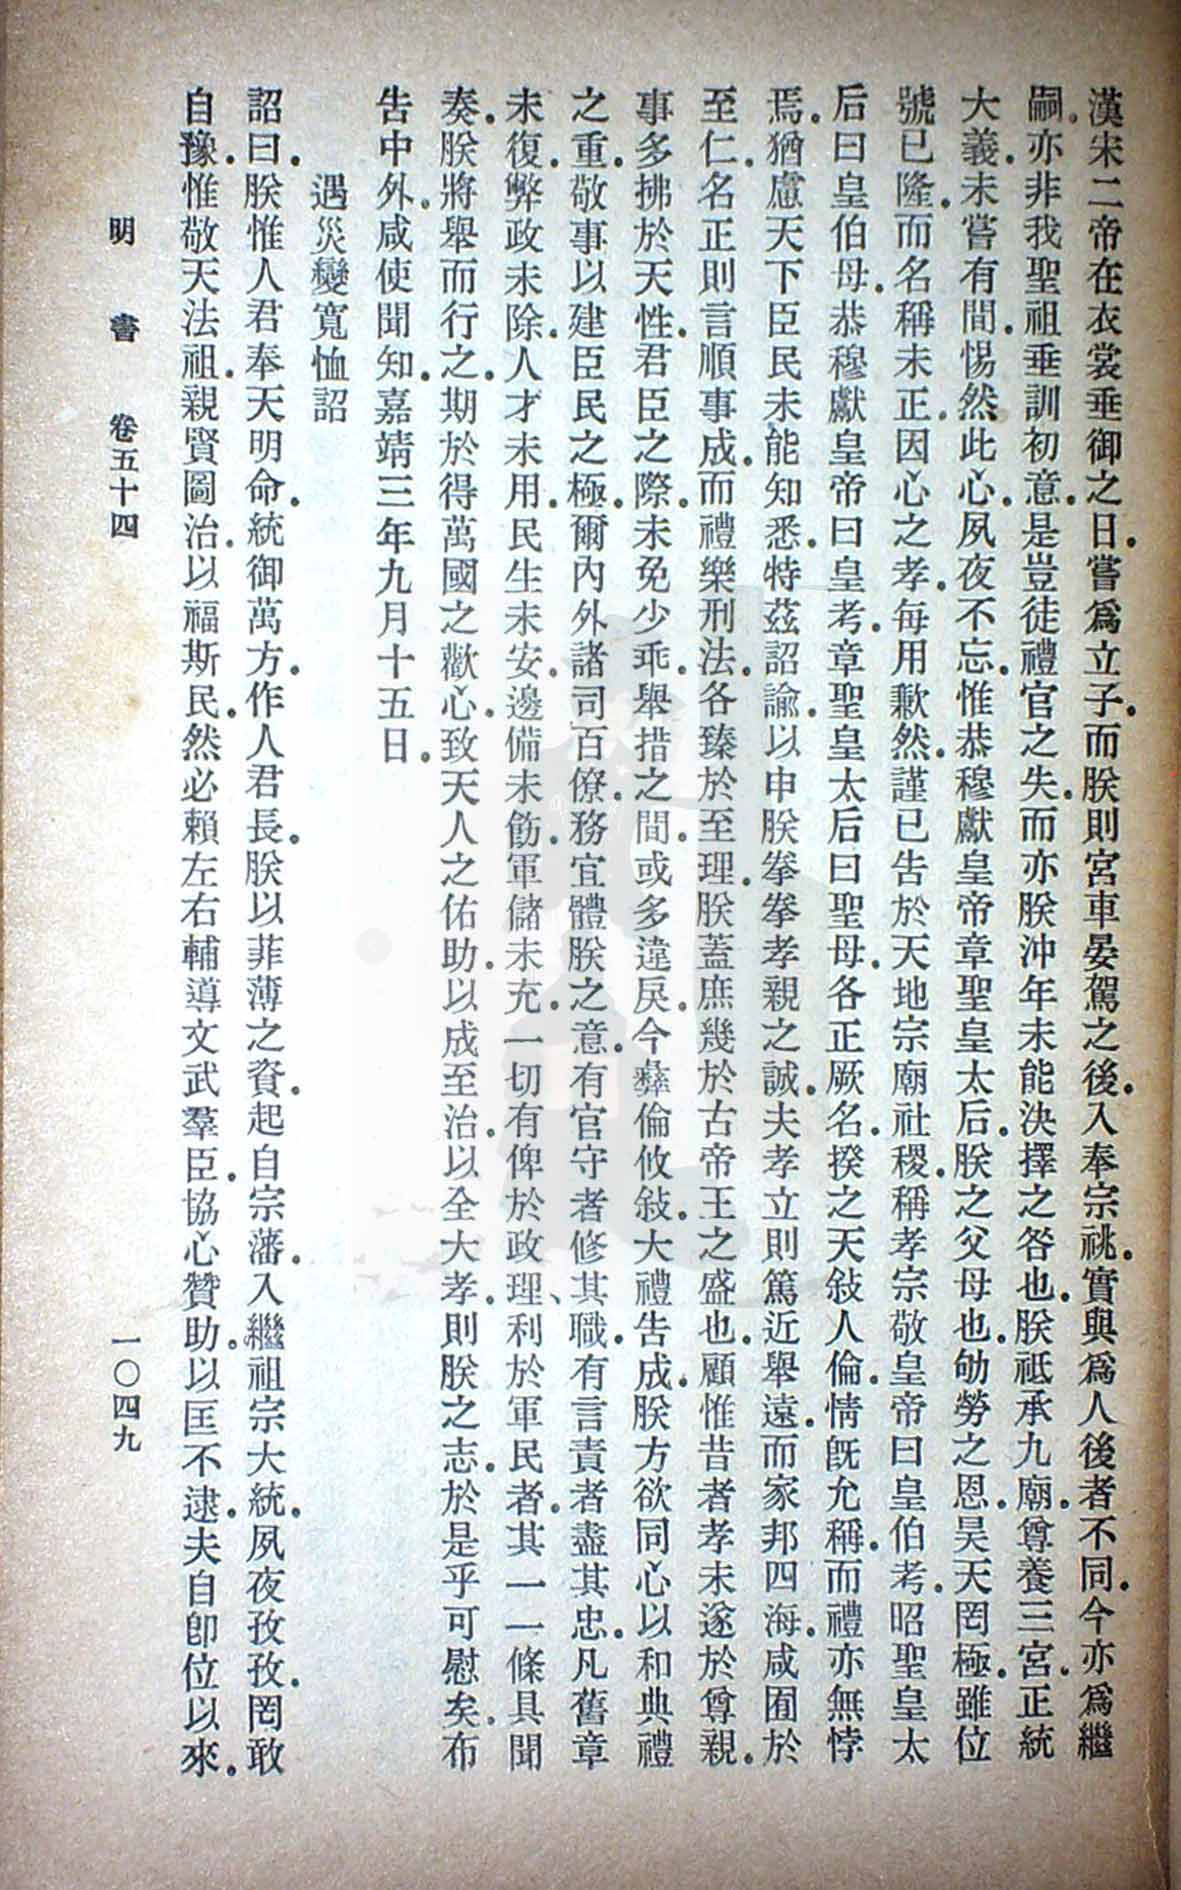 漢宋二帝在衣裳垂御之日。嘗爲立子。而朕則宮車晏駕之後。入奉宗祧。實與爲人後者不同。今亦爲繼
嗣。亦非我聖祖垂訓初意。是豈徒禮官之失。而亦朕沖年未能決擇之咎也。朕祗承九廟。尊養三宮。正統
大義。未嘗有間。惕然此心。夙夜不忘。惟恭穆獻皇帝章聖皇太后。朕之父母也。劬勞之恩。昊天罔極。雖位
號已隆。而名稱未正。因心之孝。每用歉然。謹已告於天地宗廟社稷。稱孝宗敬皇帝曰皇伯考。昭聖皇太
后曰皇伯母。恭穆獻皇帝曰皇考。章聖皇太后曰聖母。各正厥名。揆之天敍人倫。情旣允稱。而禮亦無悖
焉。猶慮天下臣民未能知悉。特茲詔諭。以申朕拳拳孝親之誠。夫孝立則篤近舉遠。而家邦四海。咸囿於
至仁。名正則言順事成。而禮樂刑法。各臻於至理。朕蓋庶幾於古帝王之盛也。顧惟昔者孝未遂於尊親。
事多拂於天性。君臣之際。未免少乖。舉措之間。或多違戾。今彝倫攸敍。大禮告成。朕方欲同心以和典禮
之重。敬事以建臣民之極。爾內外諸司百僚。務宜體朕之意。有官守者修其職。有言責者盡其忠。凡舊章
未復。弊政未除。人才未用。民生未安。邊備未飭。軍儲未充。一切有俾於政理、利於軍民者。其一一條具聞
奏。朕將舉而行之。期於得萬國之歡心。致天人之佑助。以成至治。以全大孝。則朕之志。於是乎可慰矣。布
告中外。咸使聞知。嘉靖三年九月十五日。
遇災變寬恤詔
詔曰。朕惟人君奉天明命。統御萬方。作人君長。朕以菲薄之資。起自宗藩。入繼祖宗大統。夙夜孜孜。罔敢
自豫。惟敬天法祖。親賢圖治。以福斯民。然必賴左右輔導文武羣臣。協心贊助。以匡不逮。夫自卽位以來。
明書 卷五十四 一〇四九